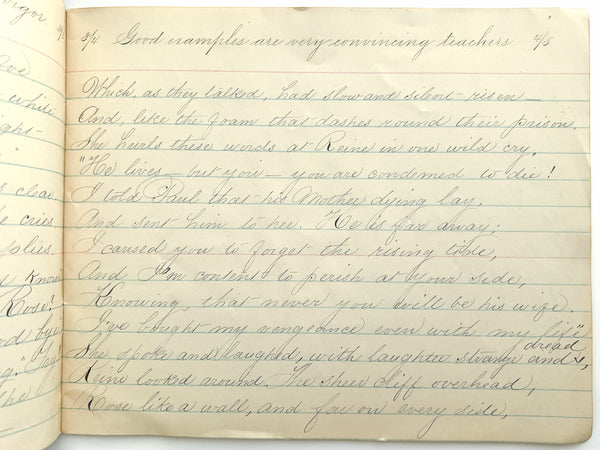 rgor.
ave
while
ight-
clear
e cries
plies.
Know
Rose!
od bye
the
3/4 Good examples are very convincing teachers. 4/5
Which, as they talked, had slow and silent risen—
And, like the foam that dashes round their prison,
She hurls these words at Reine in one wild cry,
"He lives— but you— you are condemed to die!
I told Paul that his Mother dying lay,
And sent him to her. He is far away;
I caused you to forget the rising tide,
And I'm content to perish at your side,
Knowing that never you will be his wife.
I've bought my vengeance even with my life"
She spoke and laughed, with laughter strange and dread,
Reine looked around. The sheer cliff overhead,
Rose like a wall, and far on every side,